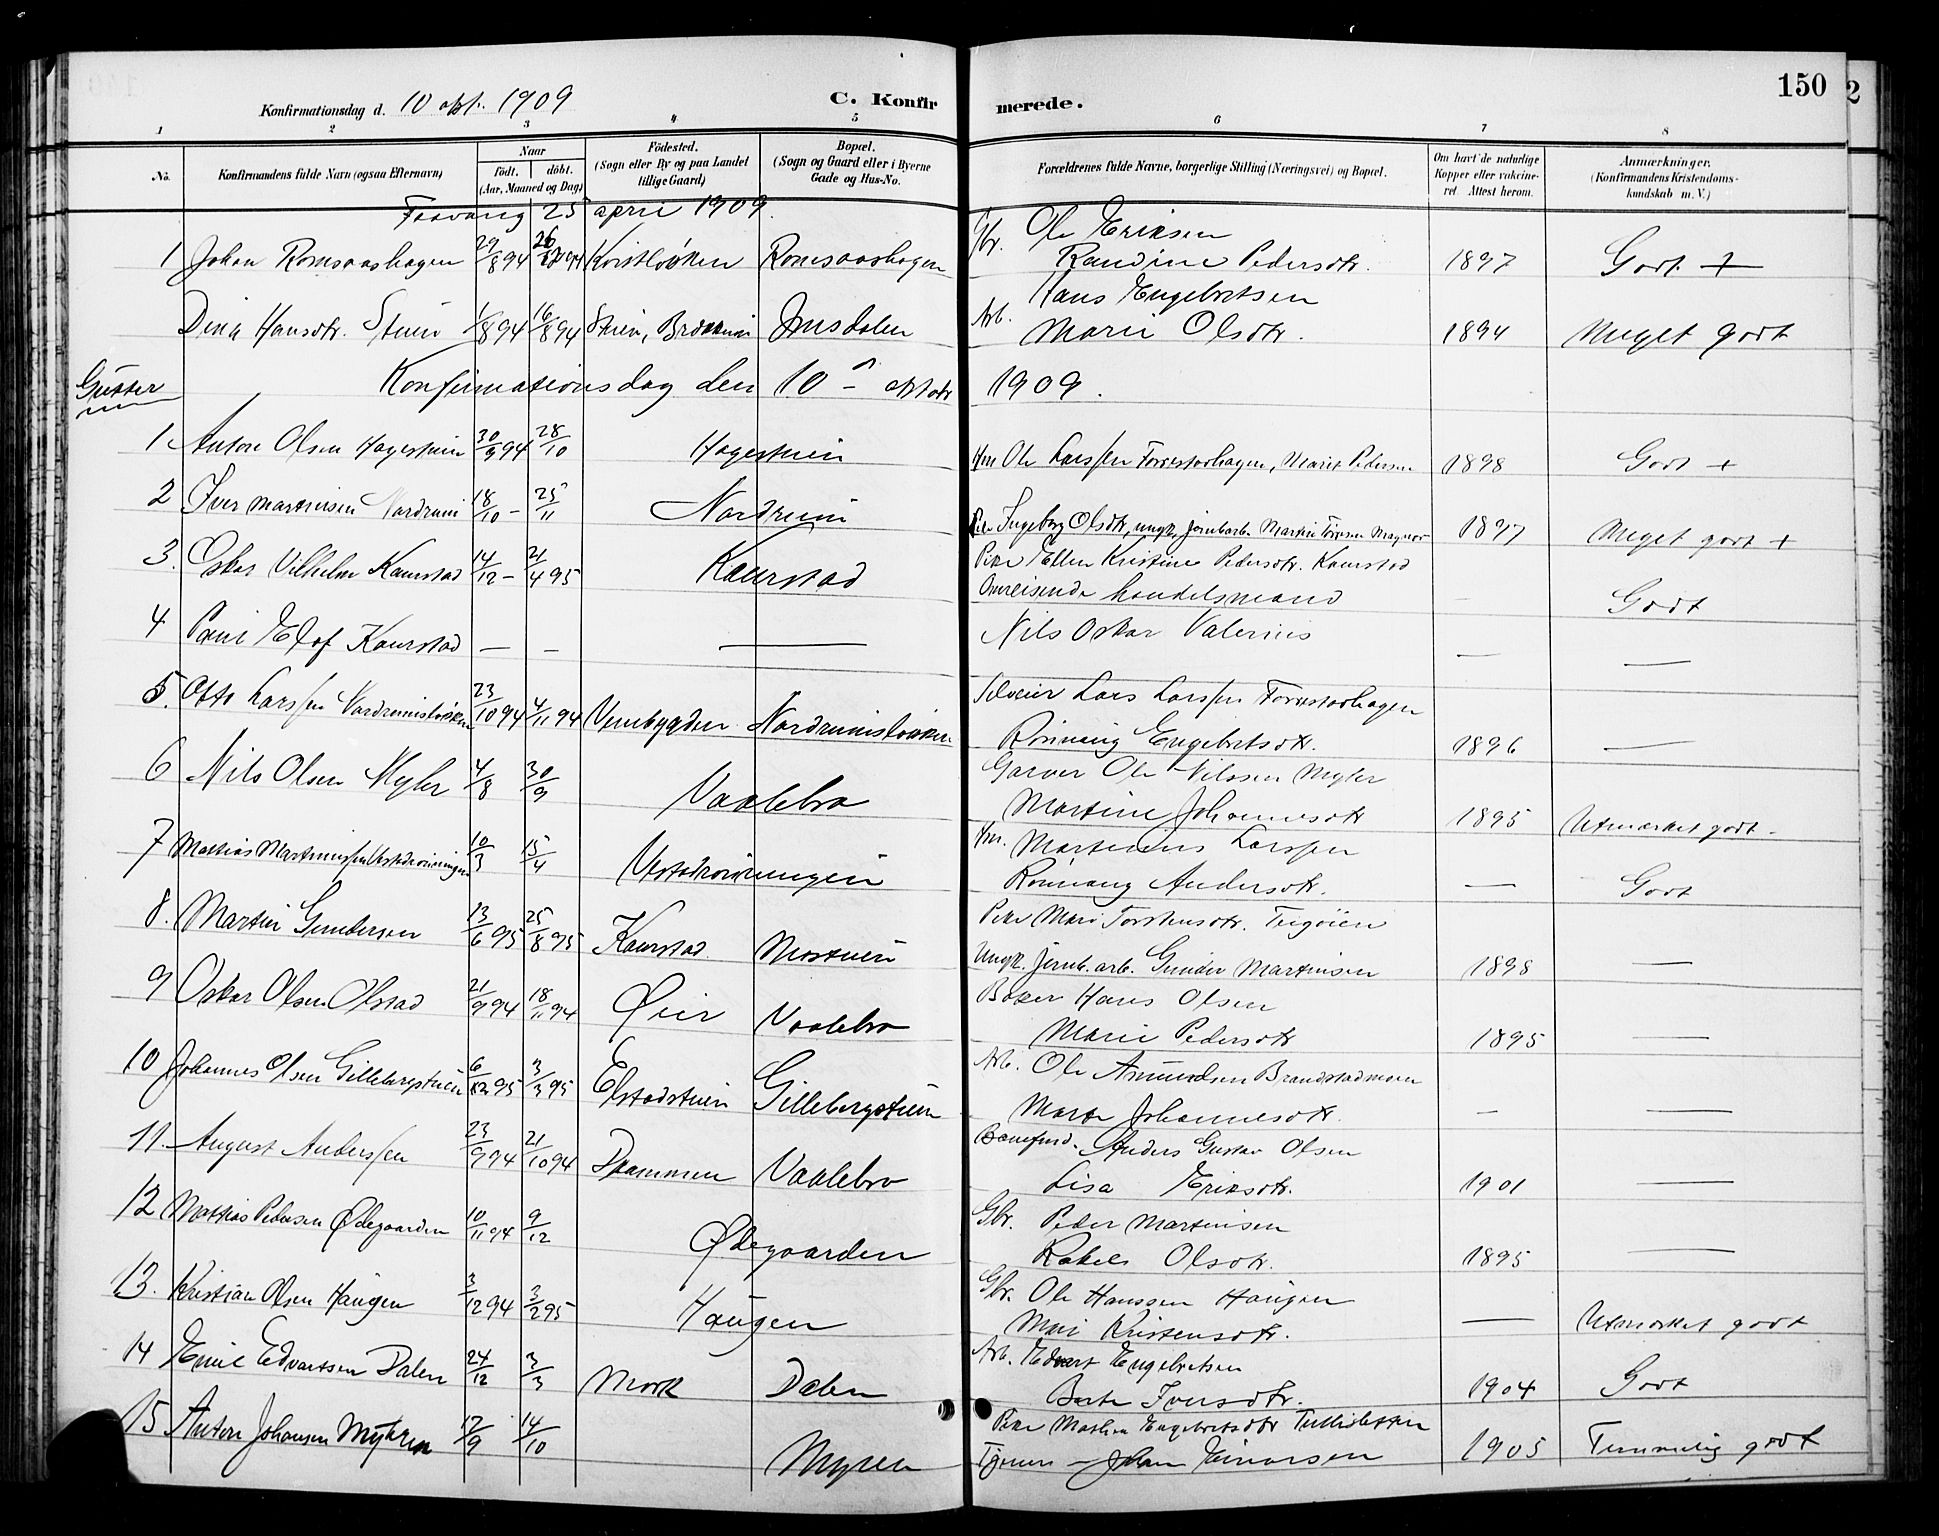 150
2
Konfirmationsdag d. 10 okt. 1909
C. Konfir merede.
1 2 3 4 5 6 7 8
No.
Konfirmandens fulde Navn (ogsaa Efternavn)
Naar
födt. döbt.
(Aar, Maaned og Dag)
Födested.
(Sogn eller By og paa Landet
tillige Gaard)
Bopæl.
(Sogn og Gaard eller i Byerne
Gade og Hus-No.
Forældrenes fulde Navne, borgerlige Stilling (Næringsvei) og Bopæl.
Om havt de naturlige
Kopper eller vakcine-
ret. Attest herom.
Anmærkninger.
(Konfirmandens Kristendoms-
kundskab m. V.)
Faavang 25 april 1909.
Gbr. Ole Eriksen
1 Johan Romsaashagen 29/8 94 Romsaashagen Randine Pedersdtr. 1897 Godt +
Hans Engebretsen
Dina Hansdtr. Stuen 1/8 94 16/8 94 Arb. Marie Olsdtr. 1894 Meget godt
Gutter
Konfirmationsdag den 10 - oktober 1909.
1 Anton Olsen Hagestuen 30/9 94 28/10 Hagestuen Hm Ole Larssen Forrestadhagen, Marit Pedersen 1898 Godt +
2 Iver Martinsen Nordrum 18/10 - 25/11 Nordrum Pike Ingeborg Olsdtr, ungk. jernbarb. Martin 1897 Meget godt +
3. Oskar Vilhelm Kaurstad 14/12 - 21/4 95 Kaurstad Pike Ellen Kristine Pedersdtr. Kaurstad
Omreisende handelsmand — Godt
4 Paul Elof Kaurstad — — — Nils Oskar Valerius — —
5. Otto Larssen Nordrumsløkken 23/10 94 4/11 94 Venebygden Nordrumsløkken Selveier Lars Larssen Forrestadhagen
Rønnaug Engebretsdtr. 1896 —
6 Nils Olsen Myler 4/8 30/9 Vaalebro Garver Ole Nilssen Myler
Martine Johannesdtr 1895 Utmerket godt -
7 Mathias Martinussen 10/3 15/4 Hm. Martinus Larssen
Rønnaug Andersdtr. — Godt
8. Martin Gundersen 13/6 95 25/8 95 Kaurstad Mostuen Pike Mari Torstensdtr.
Ungk. jernb. arb. Gunder Martinsen 1898 —
9 Oskar Olsen Olstad 21/9 94 18/11 94 Øier Vaalebro Baker Hans Olsen
Marie Pedersdtr 1895 —
10 Johannes Olsen Gillebergstuen 3/3 95 Elstadstuen Gillebergstuen Arb. Ole Amundsen Brandstadmoen
Marte Johannesdtr. — —
11. August Anderssen 23/9 94 21/10 94 Drammen Vaalebro Banefmd. Anders Gustav Olsen
Lisa Eriksdtr. 1901 —
12 Mathias Pedersen Ødegaarden 10/11 94 9/12 Ødegaarden Gbr. Peder Martinsen
Rakel Olsdtr. 1895 —
13. Kristian Olsen Haugen 3/12 94 3/2 95 Haugen Gbr. Ole Hanssen Haugen
Mari Kristensdtr. — Utmerket godt
14 Emil Edvartsen Dalen 24/12 3/3 Mork Dalen Arb. Edvart Engebretsen
Berte Iversdtr. 1904 Godt
15 Anton Johansen Myhren 17/9 14/10 Myren Pike Mathea Engebretsdtr
Tjener - Johan Einarsen 1905 Temmelig godt